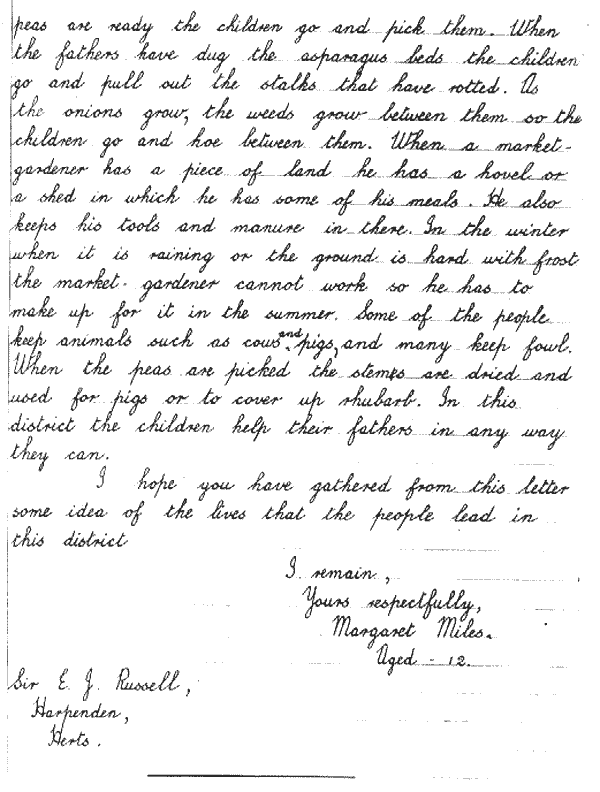 peas are ready the children go and pick them. When
the fathers have dug the asparagus beds the children
go and pull out the stalks that have rotted. As
the onions grow, the weeds grow between them so the
children go and hoe between them. When a market-
gardener has a piece of land he has a hovel or
a shed in which he has some of his meals. He also
keeps his tools and manure in there. In the winter
when it is raining or the ground is hard with frost
the market-gardener cannot work so he has to
make up for it in the summer. Some of the people
keep animals such as cows and pigs, and many keep fowl.
When the peas are picked the stems are dried and
used for pigs or to cover up rhubarb. In this
district the children help their fathers in any way
they can.
I hope you have gathered from this letter
some idea of the lives that the people lead in
this district
I remain,
Yours respectfully,
Margaret Miles.
Aged - 12.
Sir E. J. Russell,
Harpenden,
Herts.